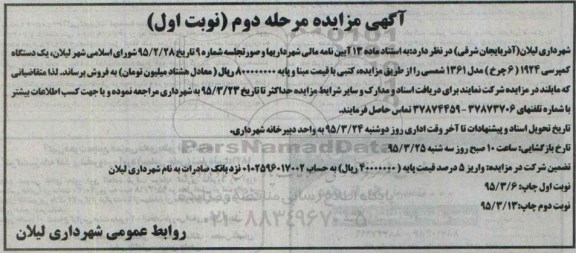 آگهی مزایده مرحله دوم (نوبت اول)
شهرداری لیلان (آذربایجان شرقی) در نظر دارد: به استناد ماده ۱۳ آیین نامه مالی شهرداریها و صورتجلسه شماره ۹ تاریخ ۹۵/۲/۲۸ شورای اسلامی شهر لیلان، یک دستگاه
کمپرسی ۱۹۲۴ (۶ چرخ) مدل ۱۳۶۱ شمسی را از طریق مزایده، کتبی با قیمت مبنا و پایه ۸۰۰۰۰۰۰۰۰ ریال (معادل هشتاد میلیون تومان) به فروش برساند. لذا متقاضیانی
که مایلند در مزایده شرکت نمایند برای دریافت اسناد و مدارک و سایر شرایط مزایده حداکثر تا تاریخ ۹۵/۳/۲۳ به شهرداری مراجعه نموده و یا جهت کسب اطلاعات بیشتر
با شماره تلفنهای ۳۷۸۷۳۷۰۶ - ۳۷۸۷۴۴۵۹ تماس حاصل فرمایند.
تاریخ تحویل اسناد و پیشنهادات تا آخر وقت اداری روز دوشنبه ۹۵/۳/۲۴ به واحد دبیرخانه شهرداری.
تاریخ بازگشایی: ساعت ۱۰ صبح روز سه شنبه ۹۵/۳/۲۵
تضمین شرکت در مزایده: واریز ۵ درصد قیمت پایه (۴۰۰۰۰۰۰۰ ریال) به حساب ۰۱۰۲۵۹۶۰۱۷۰۰۲ نزد بانک صادرات به نام شهرداری لیلان
نوبت اول چاپ: ۹۵/۳/۶
نوبت دوم چاپ: ۹۵/۳/۱۳
روابط عمومی شهرداری لیلان
ParsNamadData
۰۲۱-۸۸۳۴۹۶۷۰-۵